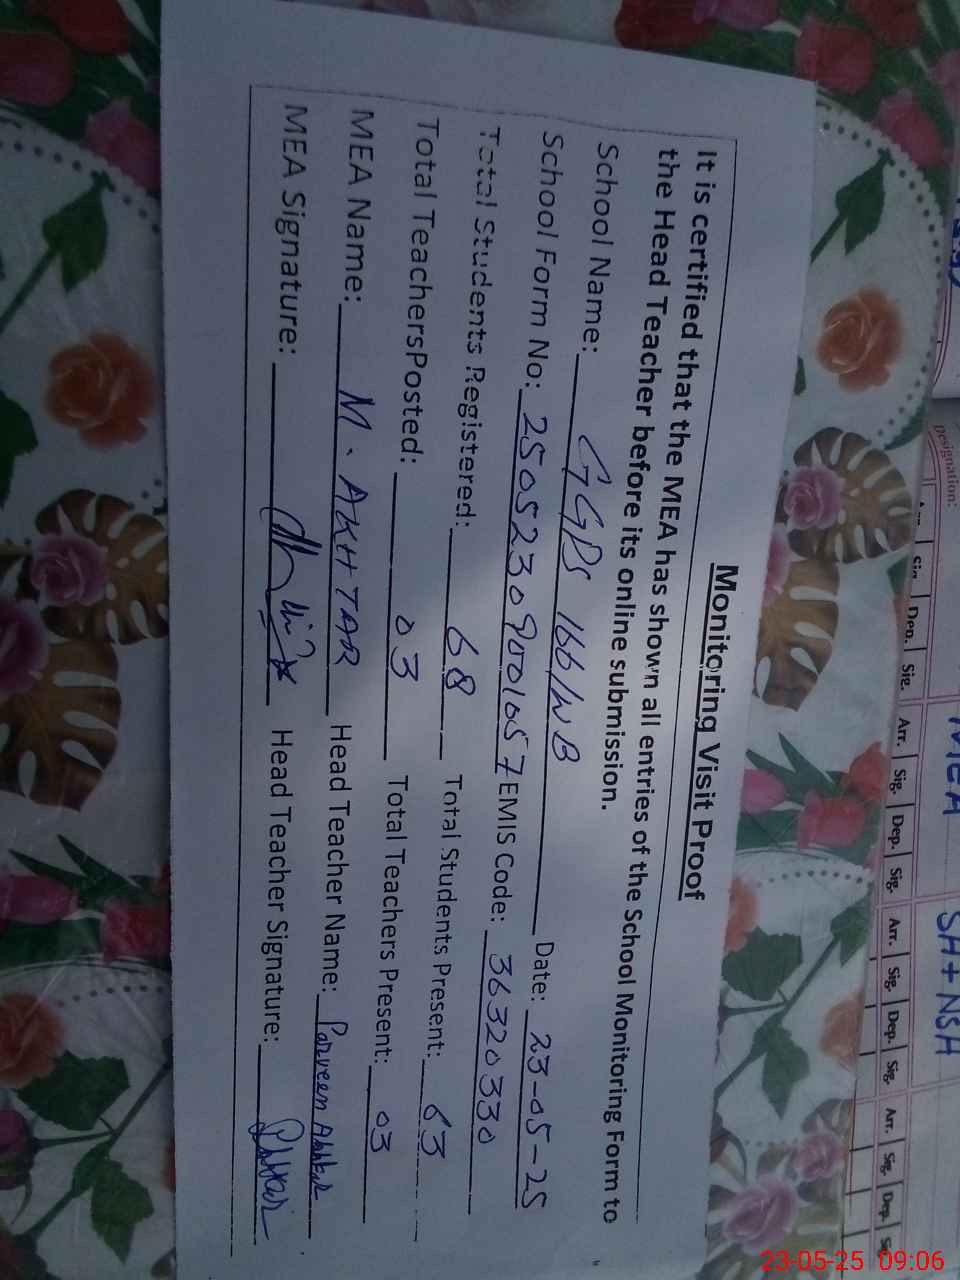 Monitoring Visit Proof
It is certified that the MEA has shown all entries of the School Monitoring Form to
the Head Teacher before its online submission.
School Name: GGPS 166/WB Date: 23-05-25
School Form No: 25052309001657 EMIS Code: 36320330
Total Students Registered: 68 Total Students Present: 63
Total TeachersPosted: 03 Total Teachers Present: 03
MEA Name: M. AKHTAR Head Teacher Name: Parveen
MEA Signature: Head Teacher Signature:
Designation:
Sig. Dep. Sig. Arr. Sig. Dep. Sig. Arr. Sig. Dep. Sig. Arr. Sig. Dep.
MEA SH+NSH
23-05-25 09:06